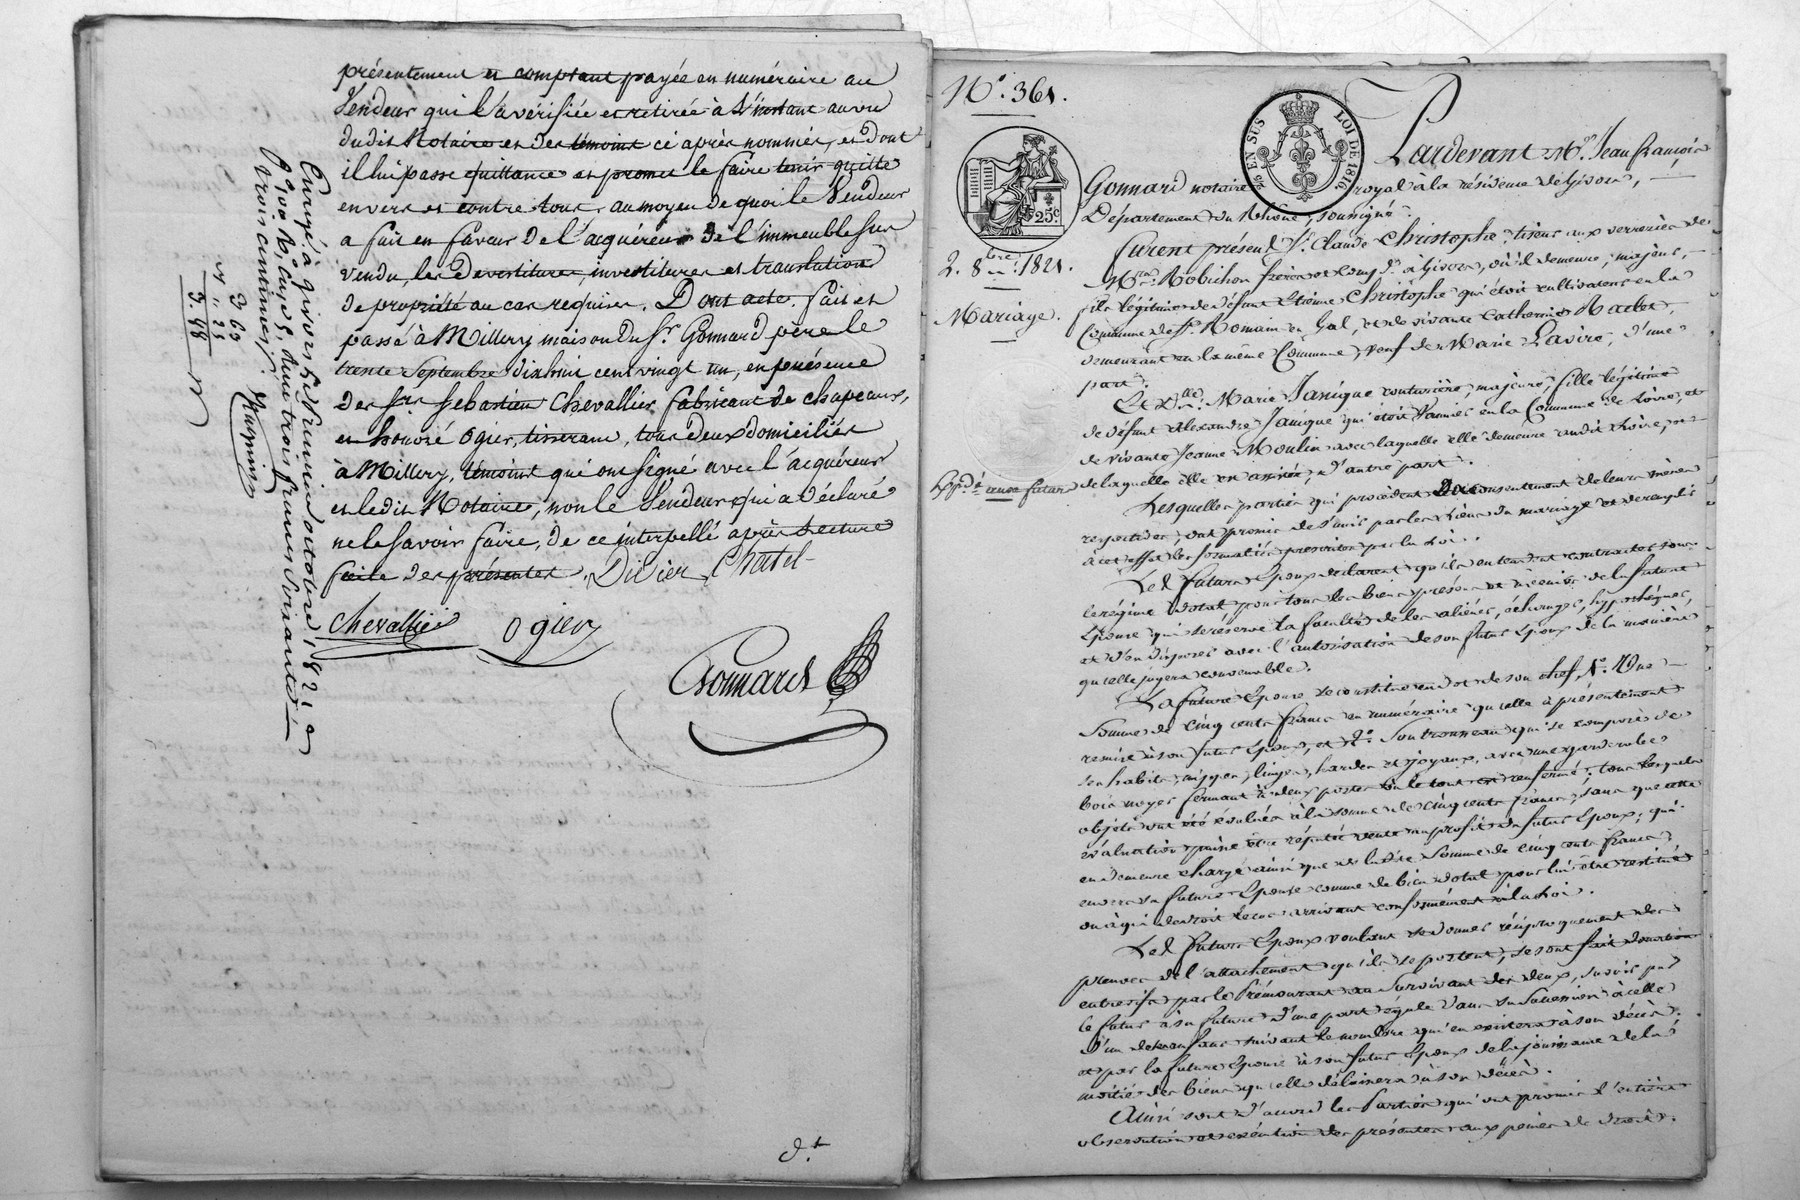 présentement et comptant payée en numéraire au
Vendeur qui l'a vérifiée et retirée à l'instant au vu
dudit Notaire et des témoins ci après nommés, et dont
il lui passe quittance et promet le faire tenir quitte
envers et contre tous, au moyen de quoi le Vendeur
a fait en faveur de l'acquéreur de l'immeuble sus
vendu, les devestitures, investitures et translation
de propriété au cas requises. Dont acte. fait et
passé à Millery maison du Sr. Gonnard père le
trente Septembre dix huit cent vingt un, en présence
des Srs. Sébastien Chevallier fabricant de chapeaux,
et honoré Ogier, tisserand, tous deux domiciliés
à Millery, témoins qui ont signé avec l'acquéreur
et ledit Notaire, non le Vendeur qui a déclaré
ne le savoir faire, de ce interpellé après lecture
faite des présentes. Didier Chatel
Chevallier Ogier
Gonnard
Enregé. à givors le huit octobre 1821
trois centimes
3 60
3. 98
d.t
No. 361.
25c
25 EN SUS LOI DE 1816
2. 8bre. 1821.
Mariage.
Pardevant Me. Jean françois
Gonnard notaire royal à la résidence de Givors,
Département du Rhône, soussigné.
furent présens Sr. Claude Christophe, tiseur aux verreries de
Mrs. Robichon frères et Comp.e à Givors, où il demeure, majeur,
fils légitime de défunt Etienne Christophe qui étoit cultivateur en la
Commune de St. Romain en Gal, et de vivante Catherine
demeurant en la même Commune, veuf de Marie d'une
part.
Et Dlle. Marie Janique couturière, majeure, fille légitime
de défunt Alexandre Janique qui étoit en la Commune de Loire, et
de vivante Jeanne Moulin avec laquelle elle demeure audit Loire, et
de laquelle elle est assistée, d'autre part.
Lesquelles parties qui procèdent du consentement de leurs mères
respectives, ont promis de s'unir par les liens du mariage et de remplir
à cet effet les formalités prescrites par la Loi.
Les futurs Epoux déclarent qu'ils entendent contracter sous
le régime dotal, pour tous les biens présens et à venir de la future
Epouse qui se réserve la faculté de les aliéner, échanger, hypothéquer,
et d'en disposer avec l'autorisation de son futur Epoux de la manière
qu'elle jugera convenable.
La future Epouse se constitue en dot de son chef, 1o. Une
Somme de cinq cents francs en numéraire qu'elle a présentement
remise à son futur Epoux, et 2o. Son trousseau qui se compose de
ses habits, nippes, linges, hardes et joyaux, avec une garderobe
bois noyer fermant à deux portes où le tout est renfermé; tous lesquels
objets ont été évalués à la somme de cinq cents francs, sans que cette
évaluation puisse être réputée vente au profit du futur Epoux; qui
en demeure chargé ainsi que de ladite Somme de cinq cents francs
envers sa future Epouse comme de bien dotal pour lui être restitués
ou à qui de droit le cas arrivant conformément à la Loi.
Les futurs Epoux voulant se donner réciproquement des
preuves de l'attachement qu'ils se portent, se sont fait donation
entre vifs par le Prémourant au Survivant des deux, savoir par
le futur à sa future d'une part égale dans sa Succession à celle
d'un de ses enfans suivant le nombre qu'en existera à son décès;
et par la future Epouse à son futur Epoux de la jouissance de la
moitié des biens qu'elle délaissera à son décès.
Ainsi sont d'accord les Parties qui ont promis l'entière
observation et exécution des présentes aux peines de droit.